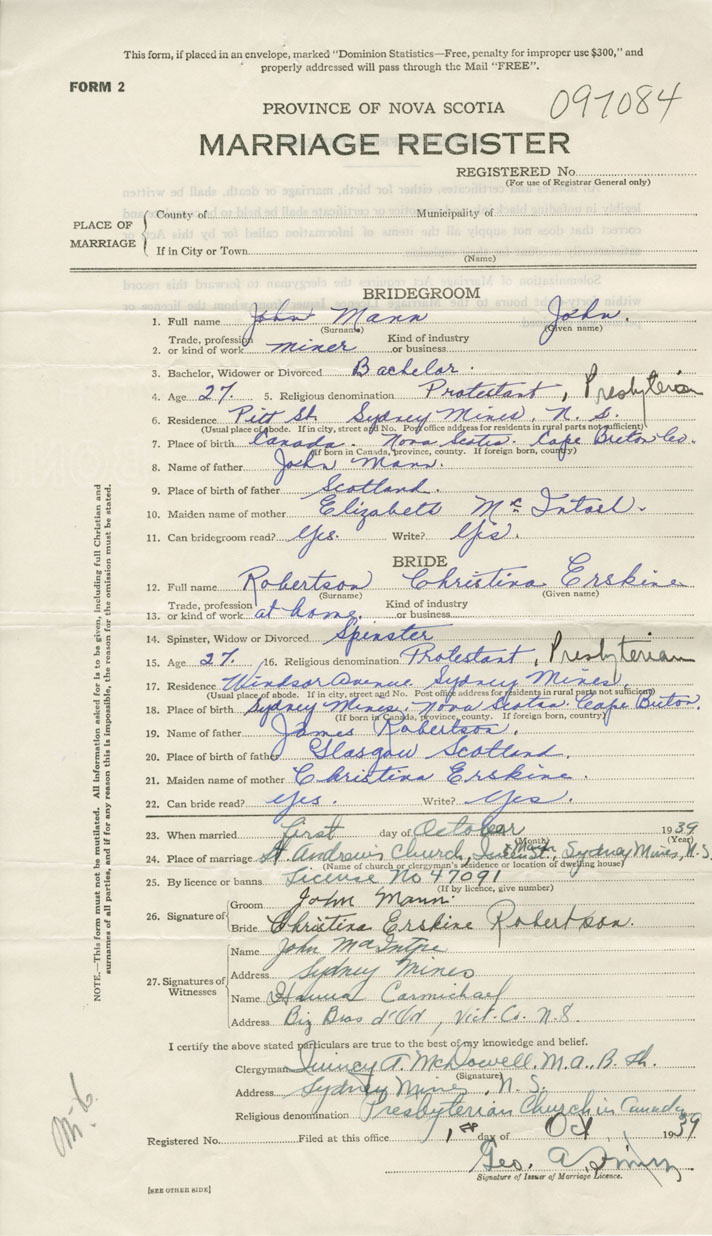 This form, if placed in an envelope, marked "Dominion Statistics—Free, penalty for improper use $300," and
properly addressed will pass through the Mail "FREE".
FORM 2
097084
PROVINCE OF NOVA SCOTIA
MARRIAGE REGISTER
REGISTERED No.
(For use of Registrar General only)
PLACE OF MARRIAGE
County of Municipality of
If in City or Town
(Name)
BRIDEGROOM
1. Full name John Mann John.
(Surname) (Given name)
2. Trade, profession or kind of work miner Kind of industry or business
3. Bachelor, Widower or Divorced Bachelor.
4. Age 27. 5. Religious denomination Protestant, Presbyterian
6. Residence Pitt St. Sydney Mines, N. S.
(Usual place of abode. If in city, street and No. Post office address for residents in rural parts not sufficient)
7. Place of birth Canada. Nova Scotia. Cape Breton Co.
(If born in Canada, province, county. If foreign born, country)
8. Name of father John Mann.
9. Place of birth of father Scotland.
10. Maiden name of mother Elizabeth
11. Can bridegroom read? Yes. Write? Yes.
BRIDE
12. Full name Robertson Christina Erskine
(Surname) (Given name)
13. Trade, profession or kind of work at home. Kind of industry or business
14. Spinster, Widow or Divorced Spinster
15. Age 27. 16. Religious denomination Protestant, Presbyterian
17. Residence Windsor Avenue Sydney Mines,
(Usual place of abode. If in city, street and No. Post office address for residents in rural parts not sufficient)
18. Place of birth Sydney Mines. Nova Scotia. Cape Breton.
(If born in Canada, province, county. If foreign born, country)
19. Name of father James Robertson.
20. Place of birth of father Glasgow Scotland.
21. Maiden name of mother Christina Erskine.
22. Can bride read? Yes. Write? Yes.
23. When married first day of October 1939
(Month) (Year)
24. Place of marriage St. Andrew's Church, Sydney Mines, N.S.
(Name of church or clergyman's residence or location of dwelling house)
25. By licence or banns License No 47091
(If by licence, give number)
26. Signature of
Groom John Mann.
Bride Christina Erskine Robertson.
27. Signatures of Witnesses
Name John
Address Sydney Mines
Name Carmichael
Address Big Bras d'Or, Vict. Co. N.S.
I certify the above stated particulars are true to the best of my knowledge and belief.
Clergyman Quincy A. McDowell, M.A., B. Th.
(Signature)
Address Sydney Mines, N. S.
Religious denomination Presbyterian Church in Canada
Registered No. Filed at this office 1st day of Oct 1939
Geo. A.
Signature of Issuer of Marriage Licence.
[SEE OTHER SIDE]
NOTE.—This form must not be mutilated. All information asked for is to be given, including full Christian and
surnames of all parties, and if for any reason this is impossible, the reason for the omission must be stated.